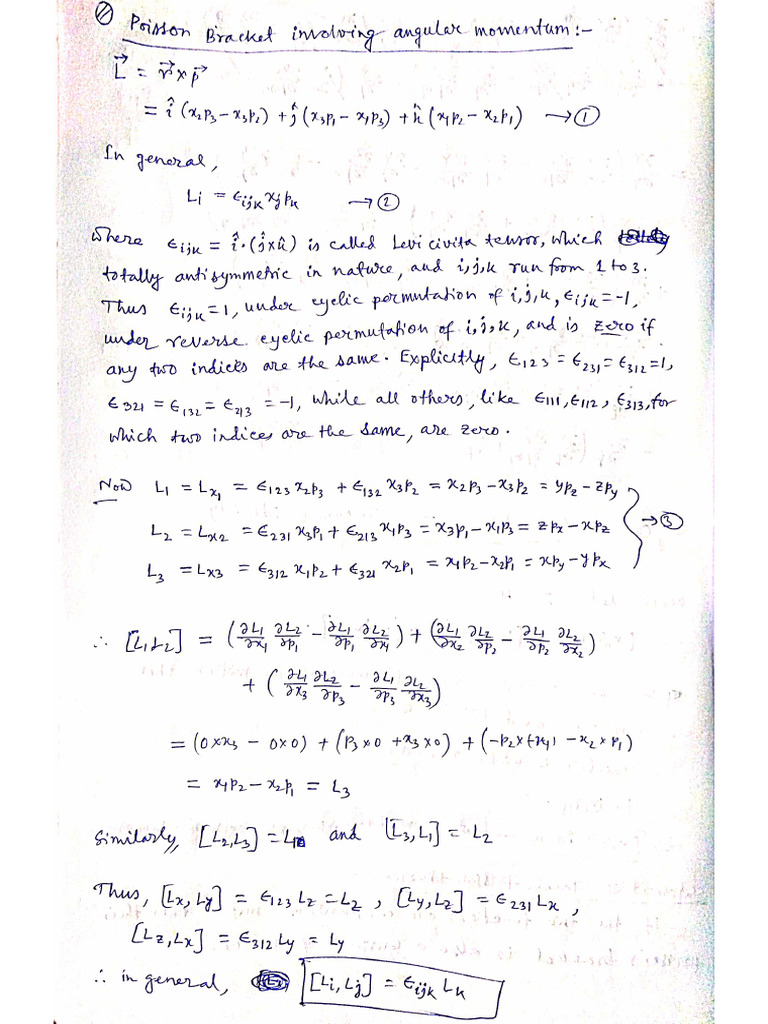 Poisson Bracket involving angular momentum:-
L⃗ = r⃗ x p⃗
= î (x₂p₃ - x₃p₂) + ĵ (x₃p₁ - x₁p₃) + k̂ (x₁p₂ - x₂p₁) → ①
In general,
Li = ϵijk xj pk → ②
Where ϵijk = î·(ĵ x k̂) is called Levi civita tensor, which
totally antisymmetric in nature, and i,j,k run from 1 to 3.
Thus ϵijk = 1, under cyclic permutation of i,j,k, ϵijk = -1,
under reverse cyclic permutation of i,j,k, and is zero if
any two indices are the same. Explicitly, ϵ₁₂₃ = ϵ₂₃₁ = ϵ₃₁₂ = 1,
ϵ₃₂₁ = ϵ₁₃₂ = ϵ₂₁₃ = -1, while all others, like ϵ₁₁₁, ϵ₁₁₂, ϵ₃₁₃, for
which two indices are the same, are zero.
Now L₁ = Lx₁ = ϵ₁₂₃ x₂p₃ + ϵ₁₃₂ x₃p₂ = x₂p₃ - x₃p₂ = ypz - zpy
L₂ = Lx₂ = ϵ₂₃₁ x₃p₁ + ϵ₂₁₃ x₁p₃ = x₃p₁ - x₁p₃ = zpx - xpz → ③
L₃ = Lx₃ = ϵ₃₁₂ x₁p₂ + ϵ₃₂₁ x₂p₁ = x₁p₂ - x₂p₁ = xpy - ypx
∴ [L₁L₂] = (∂L₁/∂x₁ ∂L₂/∂p₁ - ∂L₁/∂p₁ ∂L₂/∂x₁) + (∂L₁/∂x₂ ∂L₂/∂p₂ - ∂L₁/∂p₂ ∂L₂/∂x₂)
+ (∂L₁/∂x₃ ∂L₂/∂p₃ - ∂L₁/∂p₃ ∂L₂/∂x₃)
= (0 x x₃ - 0 x 0) + (p₃ x 0 + x₃ x 0) + (-p₂ x (-x₁) - x₂ x p₁)
= x₁p₂ - x₂p₁ = L₃
Similarly, [L₂,L₃] = L₁ and [L₃,L₁] = L₂
Thus, [Lx,Ly] = ϵ₁₂₃ Lz = Lz, [Ly,Lz] = ϵ₂₃₁ Lx,
[Lz,Lx] = ϵ₃₁₂ Ly = Ly
∴ in general, [Li,Lj] = ϵijk Lk